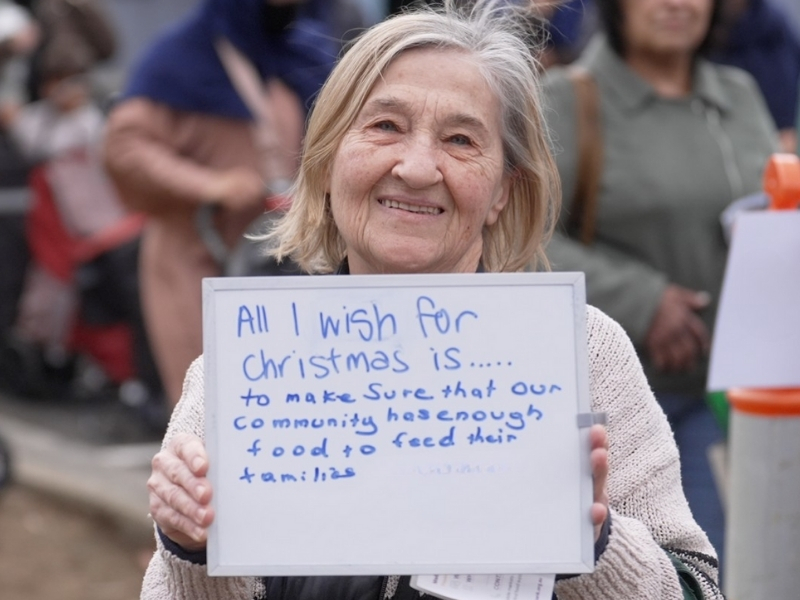 All I wish for
christmas is.....
to make sure that our
community has enough
food to feed their
families